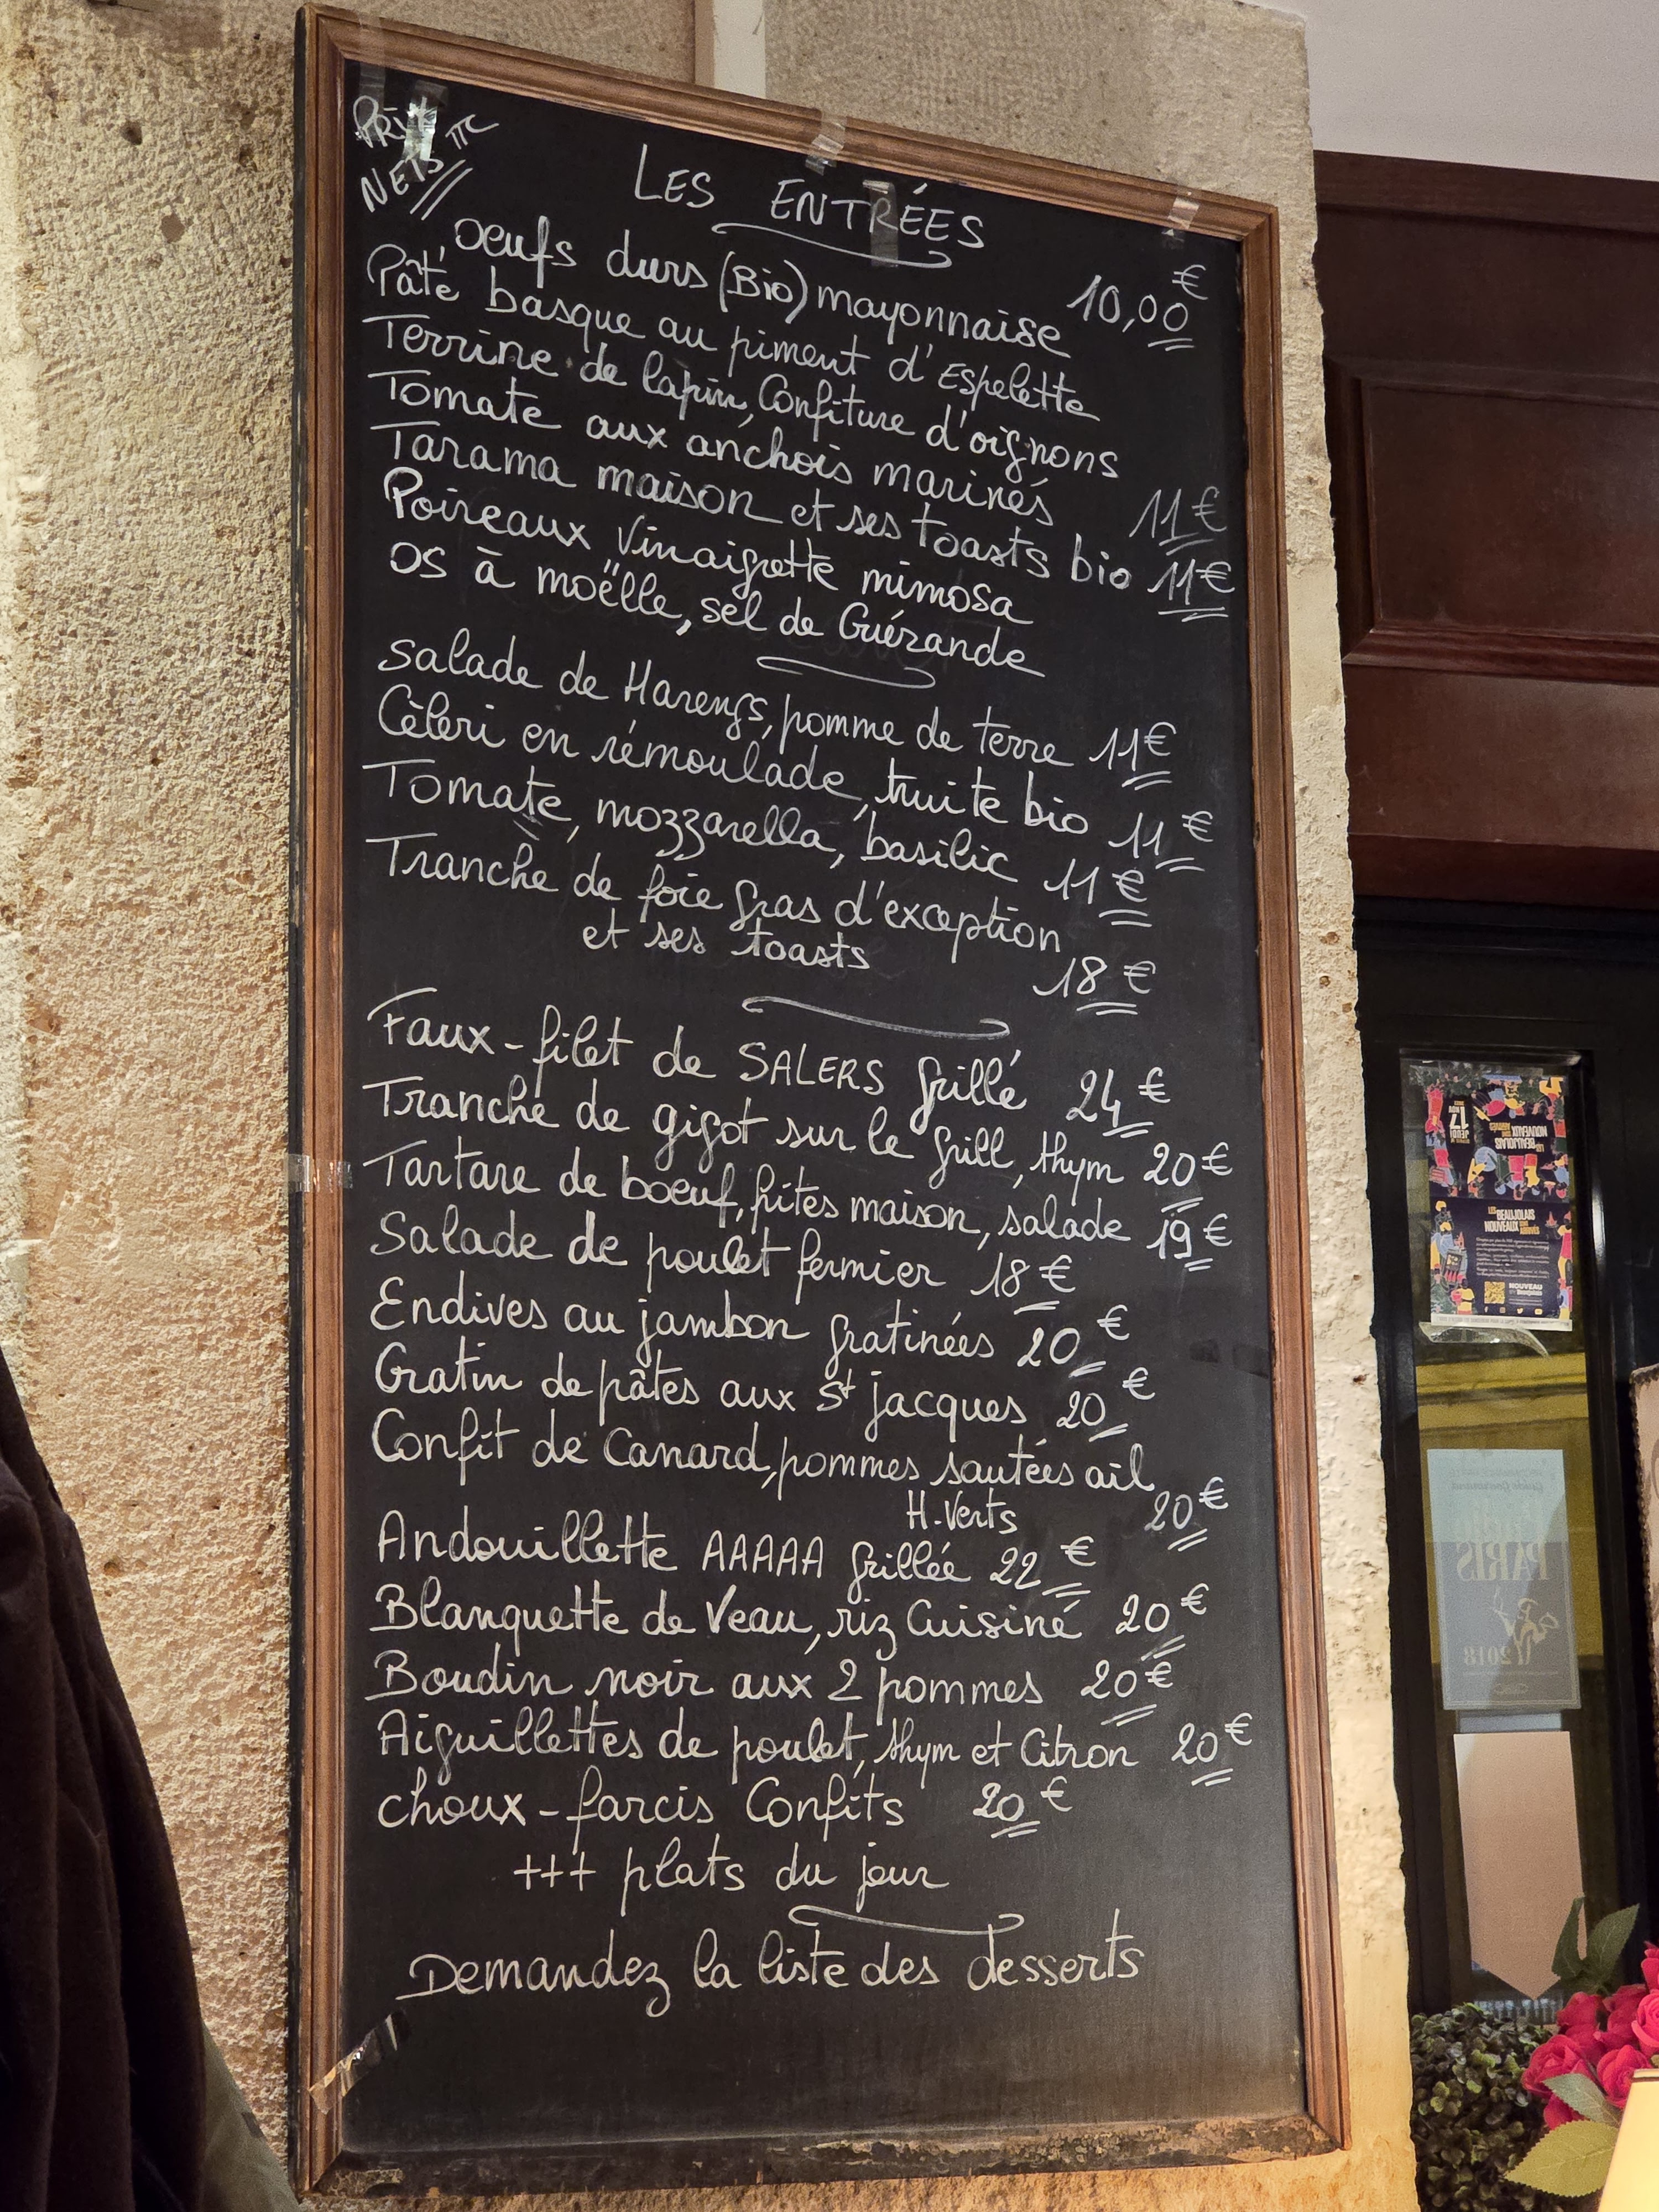 PRIX TTC
NETS
LES ENTRÉES
oeufs durs (Bio) mayonnaise 10,00 €
Pâté basque au piment d'Espelette
Terrine de lapin, Confiture d'oignons
Tomate aux anchois marinés 11 €
Tarama maison et ses toasts bio 11 €
Poireaux Vinaigrette mimosa
OS à moëlle, sel de Guérande
Salade de Harengs, pomme de terre 11 €
Céleri en rémoulade, truite bio 11 €
Tomate, mozzarella, basilic 11 €
Tranche de foie gras d'exception
et ses toasts 18 €
Faux-filet de SALERS grillé 24 €
Tranche de gigot sur le grill, thym 20 €
Tartare de boeuf, frites maison, salade 19 €
Salade de poulet fermier 18 €
Endives au jambon gratinées 20 €
Gratin de pâtes aux St jacques 20 €
Confit de Canard, pommes sautées ail
H. Verts 20 €
Andouillette AAAAA grillée 22 €
Blanquette de Veau, riz Cuisiné 20 €
Boudin noir aux 2 pommes 20 €
Aiguillettes de poulet, thym et Citron 20 €
choux-farcis Confits 20 €
+++ plats du jour
Demandez la liste des desserts
17
LES BEAUJOLAIS
NOUVEAUX SONT
ARRIVÉS
LES BEAUJOLAIS
NOUVEAUX SONT
ARRIVÉS
NOUVEAU
PARIS
2018